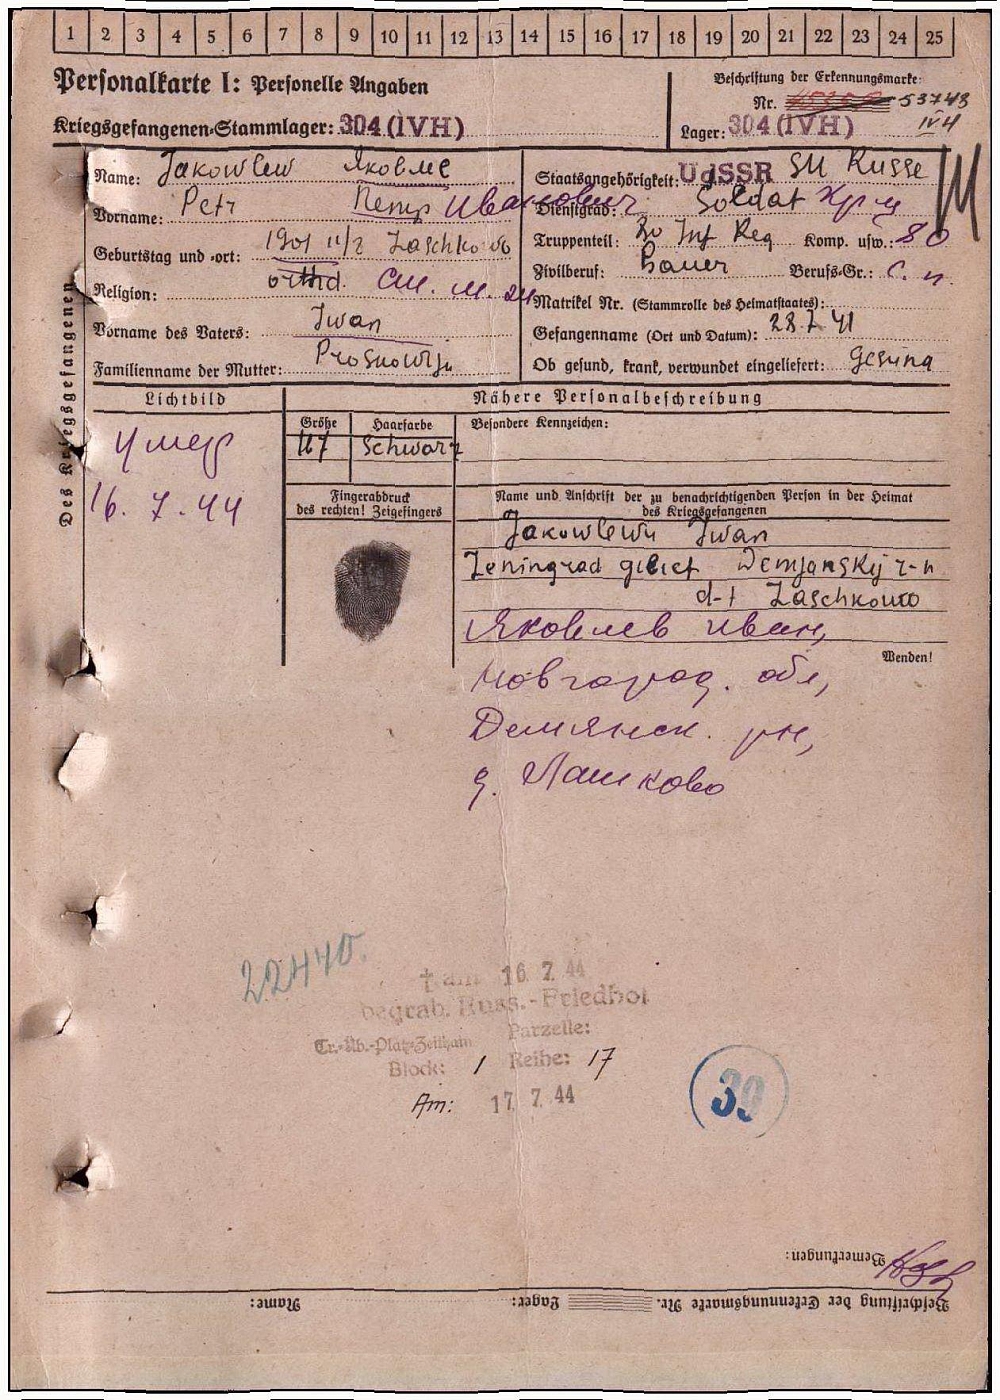 1 2 3 4 5 6 7 8 9 10 11 12 13 14 15 16 17 18 19 20 21 22 23 24 25
Personalkarte I: Personelle Angaben
Beschriftung der Erkennungsmarke:
Nr. 53743
IVH
Kriegsgefangenen-Stammlager: 304 (IVH)
Lager: 304 (IVH)
Des Kriegsgefangenen
Name: Jakowlew
Vorname: Petr Петр Иванович
Geburtstag und -ort: 1901 11/2 Laschkowo
Religion: orthd. см. м. эн
Vorname des Vaters: Iwan
Familienname der Mutter:
Staatsangehörigkeit: UdSSR SU Russe
Dienstgrad: Soldat
Truppenteil: Inf Reg Komp. usw.:
Zivilberuf: Bauer Berufs-Gr.: С. п.
Matrikel Nr. (Stammrolle des Heimatstaates):
Gefangenname (Ort und Datum): 28.7.41
Ob gesund, krank, verwundet eingeliefert: gesund
Lichtbild
Nähere Personalbeschreibung
умер
16. 7. 44
Größe Haarfarbe Besondere Kennzeichen:
Schwarz
Fingerabdruck
des rechten! Zeigefingers
Name und Anschrift der zu benachrichtigenden Person in der Heimat
des Kriegsgefangenen
Jakowlewu Iwan
Leningrad gebiet Demjanskij r-n
Laschkowo
Яковлев Иван,
Wenden!
Новгород. обл,
Демянск. рн,
д. Лашково
22440.
† am 16 7. 44
begrab. Russ.-Friedhof
Parzelle:
Tr.-Üb.-Platz Zeithain
Block: 1 Reihe: 17
Am: 17 7. 44
39
Bemerkungen:
Beschriftung der Erkennungsmarke Nr. Lager: Name: